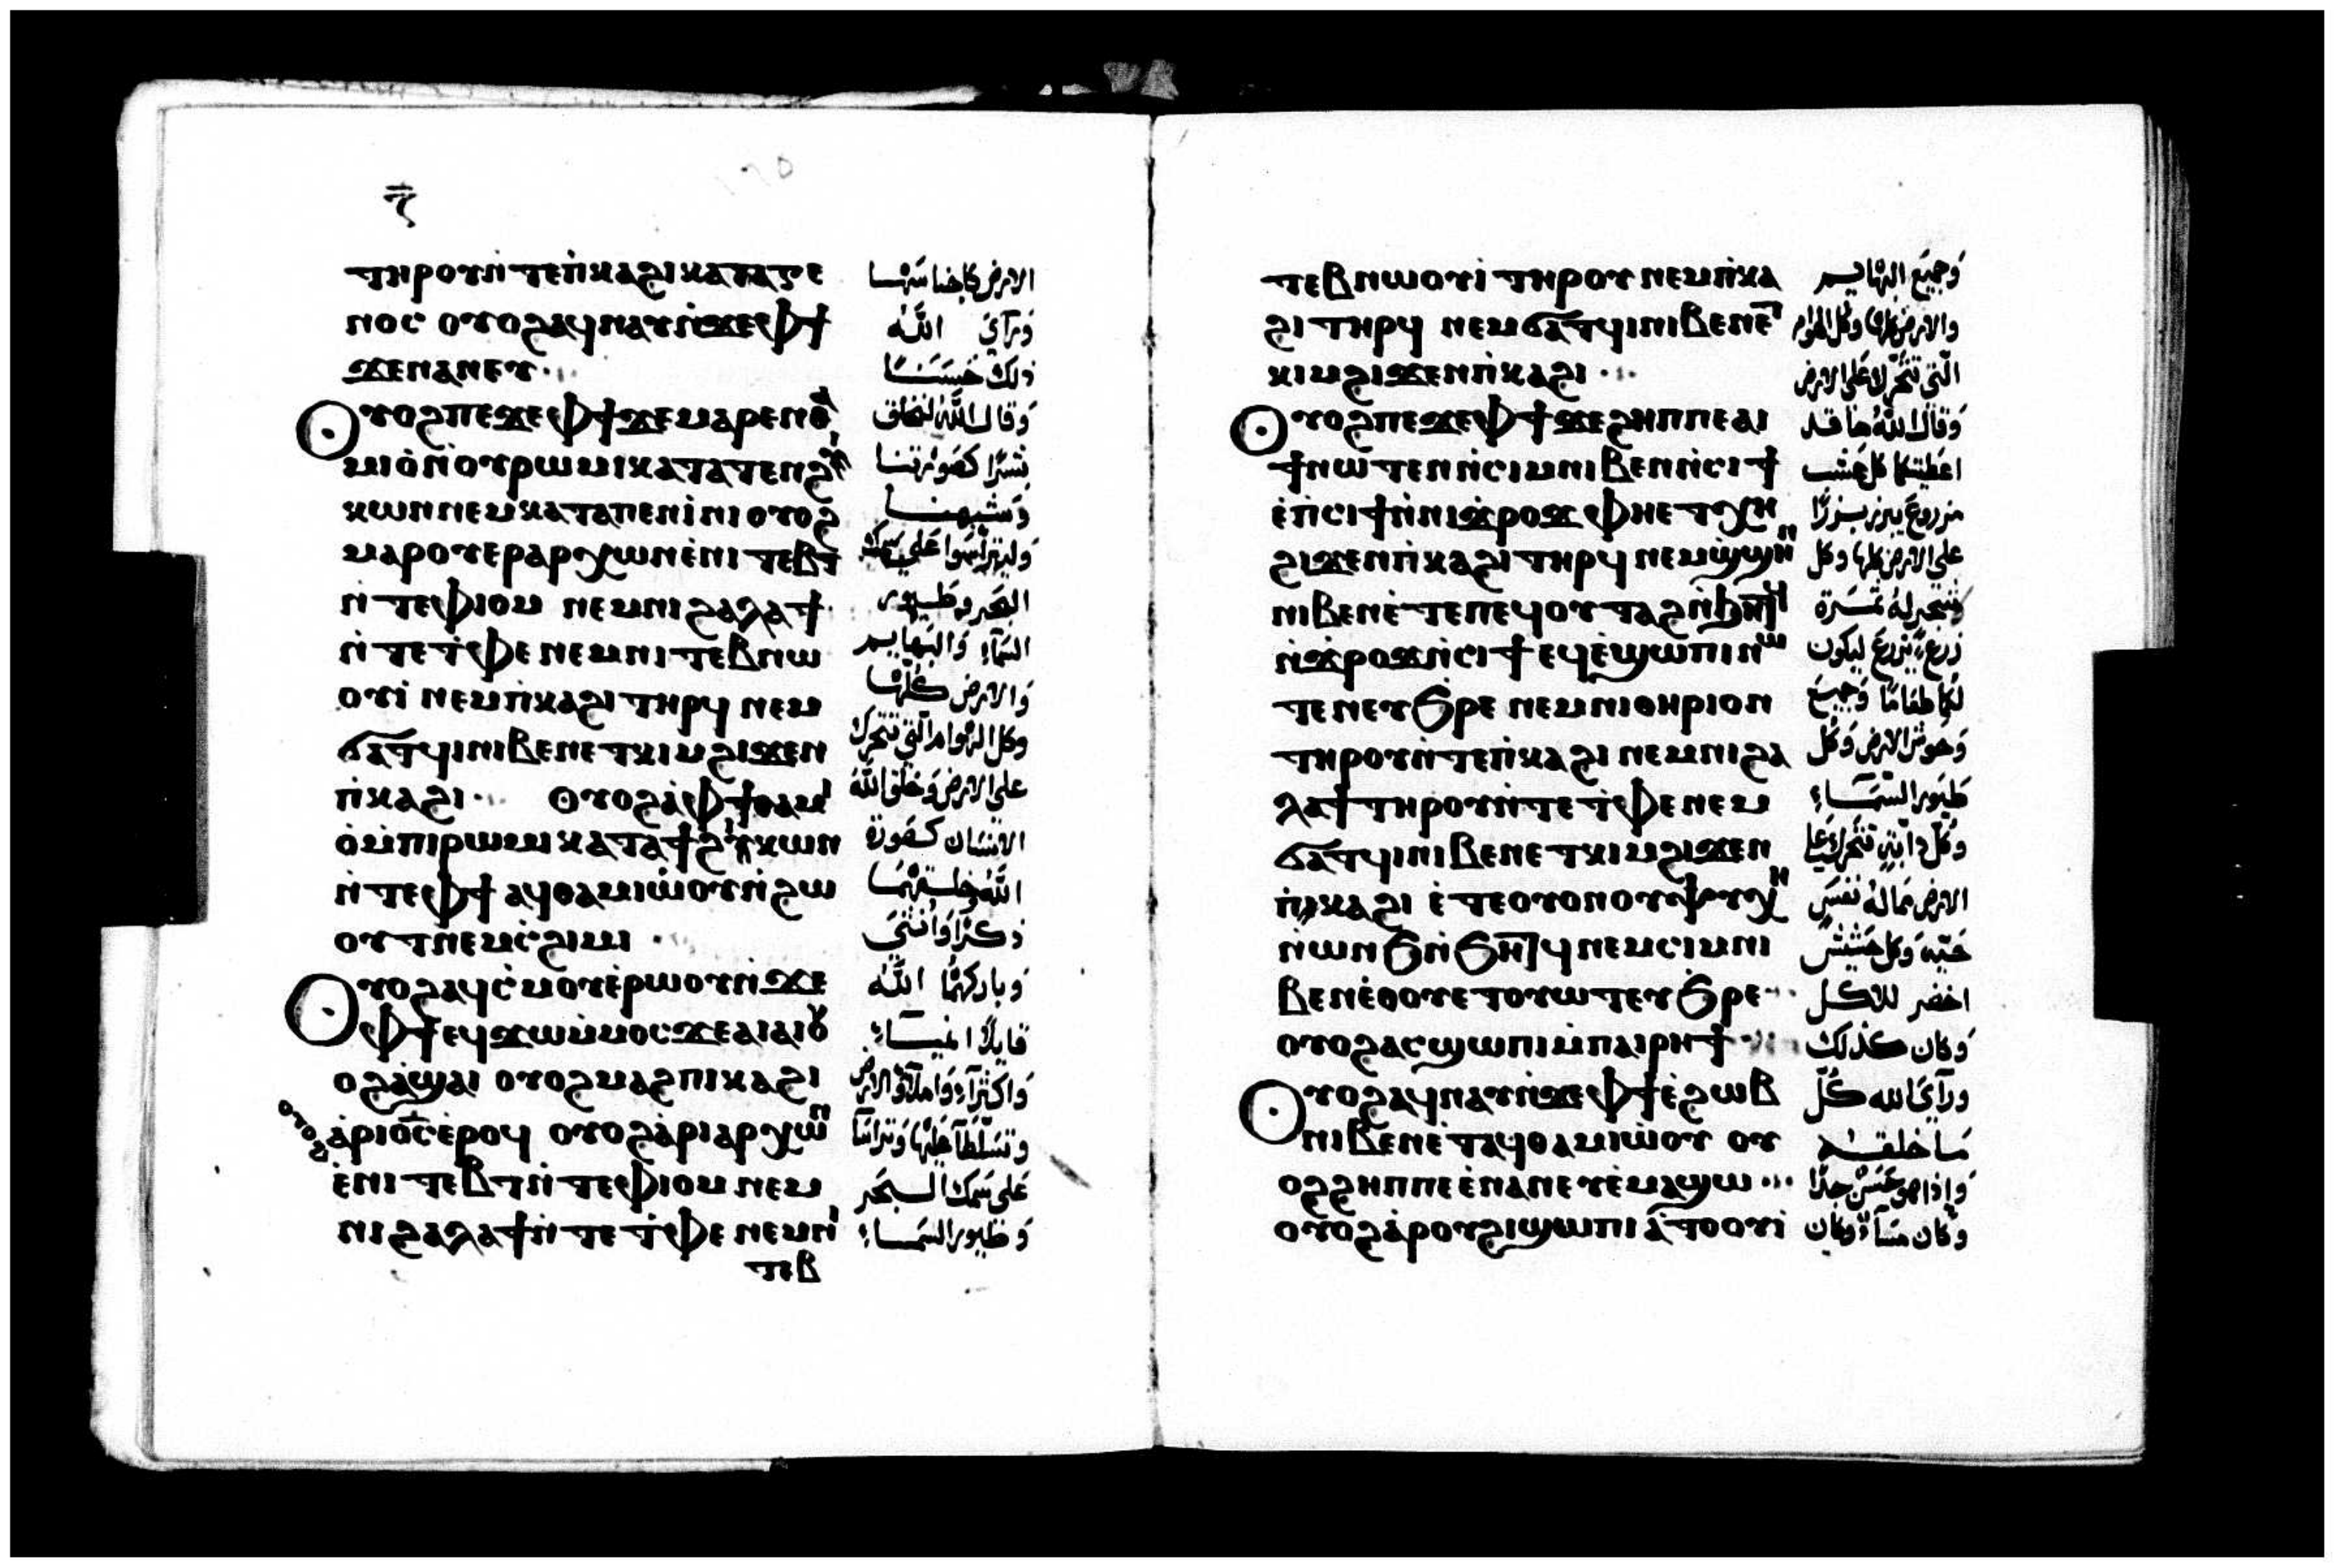 ⲋ̅
ⲧⲏⲣⲟⲩ ⲛ̀ⲧⲉ ⲡ̀ⲕⲁϩⲓ ⲕⲁⲧⲁ ⲅⲉ
ⲛⲟⲥ ⲟⲩⲟϩ ⲁϥⲛⲁⲩ ⲛ̀ϫⲉ ⲫϯ
ϫⲉ ⲛⲁⲛⲉⲩ
ⲟⲩⲟϩ ⲡⲉϫⲉ ⲫϯ ϫⲉ ⲙⲁⲣⲉⲛⲑⲁ
ⲙⲓⲟ̀ ⲛ̀ⲟⲩⲣⲱⲙⲓ ⲕⲁⲧⲁ ⲧⲉⲛϩⲩ
ⲕⲱⲛ ⲛⲉⲙ ⲕⲁⲧⲁ ⲡⲉⲛⲓ̀ⲛⲓ ⲟⲩⲟϩ
ⲙⲁⲣⲟⲩⲉⲣⲁⲣⲭⲱⲛ ⲉ̀ⲛⲓⲧⲉⲃⲧ
ⲛ̀ⲧⲉ ⲫⲓⲟⲙ ⲛⲉⲙ ⲛⲓϩⲁⲗⲁϯ
ⲛ̀ⲧⲉ ⲧ̀ⲫⲉ ⲛⲉⲙ ⲛⲓⲧⲉⲃⲛⲱ
ⲟⲩⲓ̀ ⲛⲉⲙ ⲡ̀ⲕⲁϩⲓ ⲧⲏⲣϥ ⲛⲉⲙ
ϭⲁⲧϥⲓ ⲛⲓⲃⲉⲛ ⲉⲧⲕⲓⲙ ϩⲓϫⲉⲛ
ⲡ̀ⲕⲁϩⲓ ⲟⲩⲟϩ ⲁ̀ ⲫϯ ⲑⲁⲙⲓ
ⲟ̀ ⲙ̀ⲡⲓⲣⲱⲙⲓ ⲕⲁⲧⲁ ϯϩⲩⲕⲱⲛ
ⲛ̀ⲧⲉ ⲫϯ ⲁϥⲑⲁⲙⲓⲱ̀ⲟⲩ ⲛ̀ϩⲱ
ⲟⲩⲧ ⲛⲉⲙ ⲥ̀ϩⲓⲙⲓ
ⲟⲩⲟϩ ⲁϥⲥ̀ⲙⲟⲩ ⲉ̀ⲣⲱⲟⲩ ⲛ̀ϫⲉ
ⲫϯ ⲉϥϫⲱ ⲙ̀ⲙⲟⲥ ϫⲉ ⲁⲓⲁⲓ ⲟⲩ
ⲟϩ ⲁ̀ϣⲁⲓ ⲟⲩⲟϩ ⲙⲁϩ ⲡⲓⲕⲁϩⲓ
ⲟⲩⲟϩ ⲁ̀ⲣⲓⲟ̅ⲥ̅ ⲉ̀ⲣⲟϥ ⲟⲩⲟϩ ⲁ̀ⲣⲓⲁⲣⲭⲱⲛ
ⲉ̀ⲛⲓⲧⲉⲃⲧ ⲛ̀ⲧⲉ ⲫⲓⲟⲙ ⲛⲉⲙ
ⲛⲓϩⲁⲗⲁϯ ⲛ̀ⲧⲉ ⲧ̀ⲫⲉ ⲛⲉⲙ ⲛⲓ
ⲧⲉⲃ
الارض كاجناسها
وَرآيَ اللّٰه
ذلك حَسَنًا
وَقال اللّٰهُ لنخلق
بشرًا كصُورتنا
وَشبهنا
وَليتراسوا على سمك
البَحر وطيور
السَمآءِ وَالبَهايِم
وَالارض كلّها
وكل الهوام التي تتحرك
على الارض وَخلق اللّٰهُ
الانسَان كصُورة
اللّٰهِ خلقهُما
ذكرًا وَانثىَ
وَباركهمُا اللّٰه
قايلًا انميَا
وَاكثرآ وَاملآوُ الارض
وتسَلّطآ عَليْها وَتراسَا
عَلى سَمك البحَر
وَطيور السَماءِ
ⲧⲉⲃⲛⲱⲟⲩⲓ̀ ⲧⲏⲣⲟⲩ ⲛⲉⲙ ⲡ̀ⲕⲁ
ϩⲓ ⲧⲏⲣϥ ⲛⲉⲙ ϭⲁⲧϥⲓ ⲛⲓⲃⲉⲛ ⲉⲧ
ⲕⲓⲙ ϩⲓϫⲉⲛ ⲡ̀ⲕⲁϩⲓ
ⲟⲩⲟϩ ⲡⲉϫⲉ ⲫϯ ϫⲉ ϩⲏⲡⲡⲉ ⲁⲓ
ϯⲛⲱⲧⲉⲛ ⲛ̀ⲥⲓⲙ ⲛⲓⲃⲉⲛ ⲛ̀ⲥⲓϯ
ⲉ̀ⲡ̀ⲥⲓϯ ⲛ̀ⲛⲓϫ̀ⲣⲟϫ ⲫⲏⲉⲧⲭⲏ
ϩⲓϫⲉⲛ ⲡ̀ⲕⲁϩⲓ ⲧⲏⲣϥ ⲛⲉⲙ ϣ̀ϣⲏⲛ
ⲛⲓⲃⲉⲛ ⲉ̀ⲧⲉ ⲡⲉϥⲟⲩⲧⲁϩ ⲛ̀ϧⲏⲧϥ
ⲛ̀ϫ̀ⲣⲟϫ ⲛ̀ⲥⲓϯ ⲉϥⲉ̀ϣⲱⲡⲓ ⲛⲱ
ⲧⲉⲛ ⲉⲩϧ̀ⲣⲉ ⲛⲉⲙ ⲛⲓⲑⲏⲣⲓⲟⲛ
ⲧⲏⲣⲟⲩ ⲛ̀ⲧⲉ ⲡ̀ⲕⲁϩⲓ ⲛⲉⲙ ⲛⲓϩⲁ
ⲗⲁϯ ⲧⲏⲣⲟⲩ ⲛ̀ⲧⲉ ⲧ̀ⲫⲉ ⲛⲉⲙ
ϭⲁⲧϥⲓ ⲛⲓⲃⲉⲛ ⲉⲧⲕⲓⲙ ϩⲓϫⲉⲛ
ⲡⲓⲕⲁϩⲓ ⲉ̀ⲧⲉ ⲟⲩⲟⲛ ⲟⲩⲯⲩⲭⲏ
ⲛ̀ⲱⲛϧ ⲛ̀ϧⲏⲧϥ ⲛⲉⲙ ⲥⲓⲙ ⲛⲓ
ⲃⲉⲛ ⲉ̀ⲑⲟⲩⲉⲧⲟⲩⲱⲧ ⲉⲩϧ̀ⲣⲉ
ⲟⲩⲟϩ ⲁⲥϣⲱⲡⲓ ⲙ̀ⲡⲁⲓⲣⲏϯ
ⲟⲩⲟϩ ⲁϥⲛⲁⲩ ⲛ̀ϫⲉ ⲫϯ ⲉ̀ϩⲱⲃ
ⲛⲓⲃⲉⲛ ⲉ̀ⲧⲁϥⲑⲁⲙⲓⲱ̀ⲟⲩ ⲟⲩ
ⲟϩ ϩⲏⲡⲡⲉ ⲉ̀ⲛⲁⲛⲉⲩ ⲉ̀ⲙⲁϣⲱ
ⲟⲩⲟϩ ⲁ̀ ⲣⲟⲩϩⲓ ϣⲱⲡⲓ ⲁ̀ ⲧⲟⲟⲩⲓ̀
وَجميَع البهَايِم
والارض كلها وكل الهوام
التّي تتحرّك علي الارض
وَقال اللّٰهُ هَا قد
اعَطيتكما كل عشب
مزروع يبزر بزرًا
على الارض كلها وكل
شجر لهُ ثمَرة
زرع يزرع ليكون
لَكما طعَامًا وَجميعَ
وَحوش الارض وَكل
طيوُر السَّمَاءِ
وَكل دآبَّة تتحَرك علي
الارض ممالهُ نفسٍ
حَيّه وَكل حَشيش
اخضر للاكل
وَكان كذلك
ورآيَ الله كُلّ
مَا خلقه
وَإذا هو حَسَنْ جدًا
وَكان مسَآءً وكان